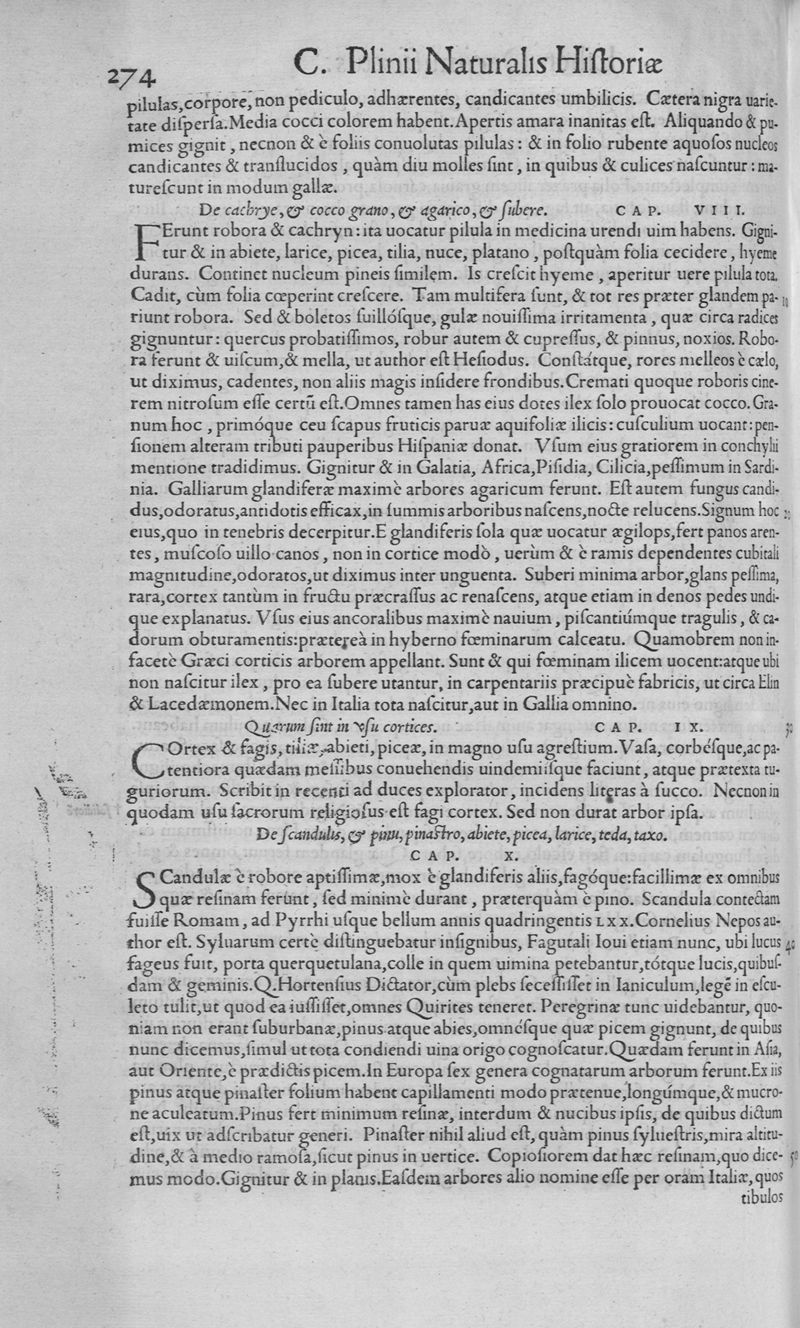 274 C. Plinii Naturalis Hiſtoriæ
pilulas,corpore, non pediculo, adhærentes, candicantes umbilicis. Cætera nigra uarie-
tate diſperſa.Media cocci colorem habent.Apertis amara inanitas eſt. Aliquando & pu-
mices gignit, necnon & è foliis conuolutas pilulas: & in folio rubente aquoſos nucleos
candicantes & tranſlucidos, quàm diu molles ſint, in quibus & culices naſcuntur: ma-
tureſcunt in modum gallæ.
De cachrye, & cocco grano, & agarico, & ſubere. CAP. VIII.
FErunt robora & cachryn: ita uocatur pilula in medicina urendi uim habens. Gigni-
tur & in abiete, larice, picea, tilia, nuce, platano, poſtquàm folia cecidere, hyeme
durans. Continet nucleum pineis ſimilem. Is creſcit hyeme, aperitur uere pilula tota.
Cadit, cùm folia cœperint creſcere. Tam multifera ſunt, & tot res præter glandem pa- 10
riunt robora. Sed & boletos ſuillóſque, gulæ nouiſſima irritamenta, quæ circa radices
gignuntur: quercus probatiſſimos, robur autem & cupreſſus, & pinnus, noxios. Robo-
ra ferunt & uiſcum,& mella, ut author eſt Heſiodus. Conſtátque, rores melleos è cælo,
ut diximus, cadentes, non aliis magis inſidere frondibus.Cremati quoque roboris cine-
rem nitroſum eſſe certū eſt.Omnes tamen has eius dotes ilex ſolo prouocat cocco.Gra-
num hoc, primóque ceu ſcapus fruticis paruæ aquifoliæ ilicis: cuſculium uocant: pen-
ſionem alteram tributi pauperibus Hiſpaniæ donat. Vſum eius gratiorem in conchylii
mentione tradidimus. Gignitur & in Galatia, Africa,Piſidia, Cilicia,peſſimum in Sardi-
nia. Galliarum glandiferæ maximè arbores agaricum ferunt. Eſt autem fungus candi-
dus,odoratus,antidotis efficax,in ſummis arboribus naſcens,nocte relucens.Signum hoc
eius,quo in tenebris decerpitur.E glandiferis ſola quæ uocatur ægilops,fert panos aren-
tes, muſcoſo uillo canos, non in cortice modò, uerùm & è ramis dependentes cubitali
magnitudine,odoratos,ut diximus inter unguenta. Suberi minima arbor,glans peſſima,
rara,cortex tantùm in fructu præcraſſus ac renaſcens, atque etiam in denos pedes undi-
que explanatus. Vſus eius ancoralibus maximè nauium, piſcantiúmque tragulis, & ca-
dorum obturamentis:prætereà in hyberno fœminarum calceatu. Quamobrem non in-
facetè Græci corticis arborem appellant. Sunt & qui fœminam ilicem uocent:atque ubi
non naſcitur ilex, pro ea ſubere utantur, in carpentariis præcipuè fabricis, ut circa Elin
& Lacedæmonem.Nec in Italia tota naſcitur,aut in Gallia omnino.
Quarum ſint in vſu cortices. CAP. IX. 30
COrtex & fagis, tiliæ, abieti, piceæ, in magno uſu agreſtium.Vaſa, corbéſque,ac pa-
tentiora quædam meſſibus conuehendis uindemiiſque faciunt, atque prætexta tu-
guriorum. Scribit in recenti ad duces explorator, incidens literas à ſucco. Necnon in
quodam uſu ſacrorum religioſus eſt fagi cortex. Sed non durat arbor ipſa.
De ſcandulis, & pinu, pinaſtro, abiete, picea, larice, teda, taxo.
CAP. X.
SCandulæ è robore aptiſſimæ,mox è glandiferis aliis,fagóque:facillimæ ex omnibus
quæ reſinam ferunt, ſed minimè durant, præterquàm è pino. Scandula contectam
fuiſſe Romam, ad Pyrrhi uſque bellum annis quadringentis LXX.Cornelius Nepos au-
thor eſt. Syluarum certè diſtinguebatur inſignibus, Fagutali Ioui etiam nunc, ubi lucus 40
fageus fuit, porta querquetulana,colle in quem uimina petebantur,tótque lucis,quibuſ-
dam & geminis.Q.Hortenſius Dictator,cùm plebs ſeceſſiſſet in Ianiculum,legē in eſcu-
leto tulit,ut quod ea iuſſiſſet,omnes Quirites teneret. Peregrinæ tunc uidebantur, quo-
niam non erant ſuburbanæ,pinus atque abies,omnéſque quæ picem gignunt, de quibus
nunc dicemus,ſimul ut tota condiendi uina origo cognoſcatur.Quædam ferunt in Aſia,
aut Oriente,è prædictis picem.In Europa ſex genera cognatarum arborum ferunt.Ex iis
pinus atque pinaſter folium habent capillamenti modo prætenue,longúmque,& mucro-
ne aculeatum.Pinus fert minimum reſinæ, interdum & nucibus ipſis, de quibus dictum
eſt,uix ut adſcribatur generi. Pinaſter nihil aliud eſt, quàm pinus ſylueſtris,mira altitu-
dine,& à medio ramoſa,ſicut pinus in uertice. Copioſiorem dat hæc reſinam,quo dice- 50
mus modo.Gignitur & in planis.Eaſdem arbores alio nomine eſſe per oram Italiæ, quos
tibulos